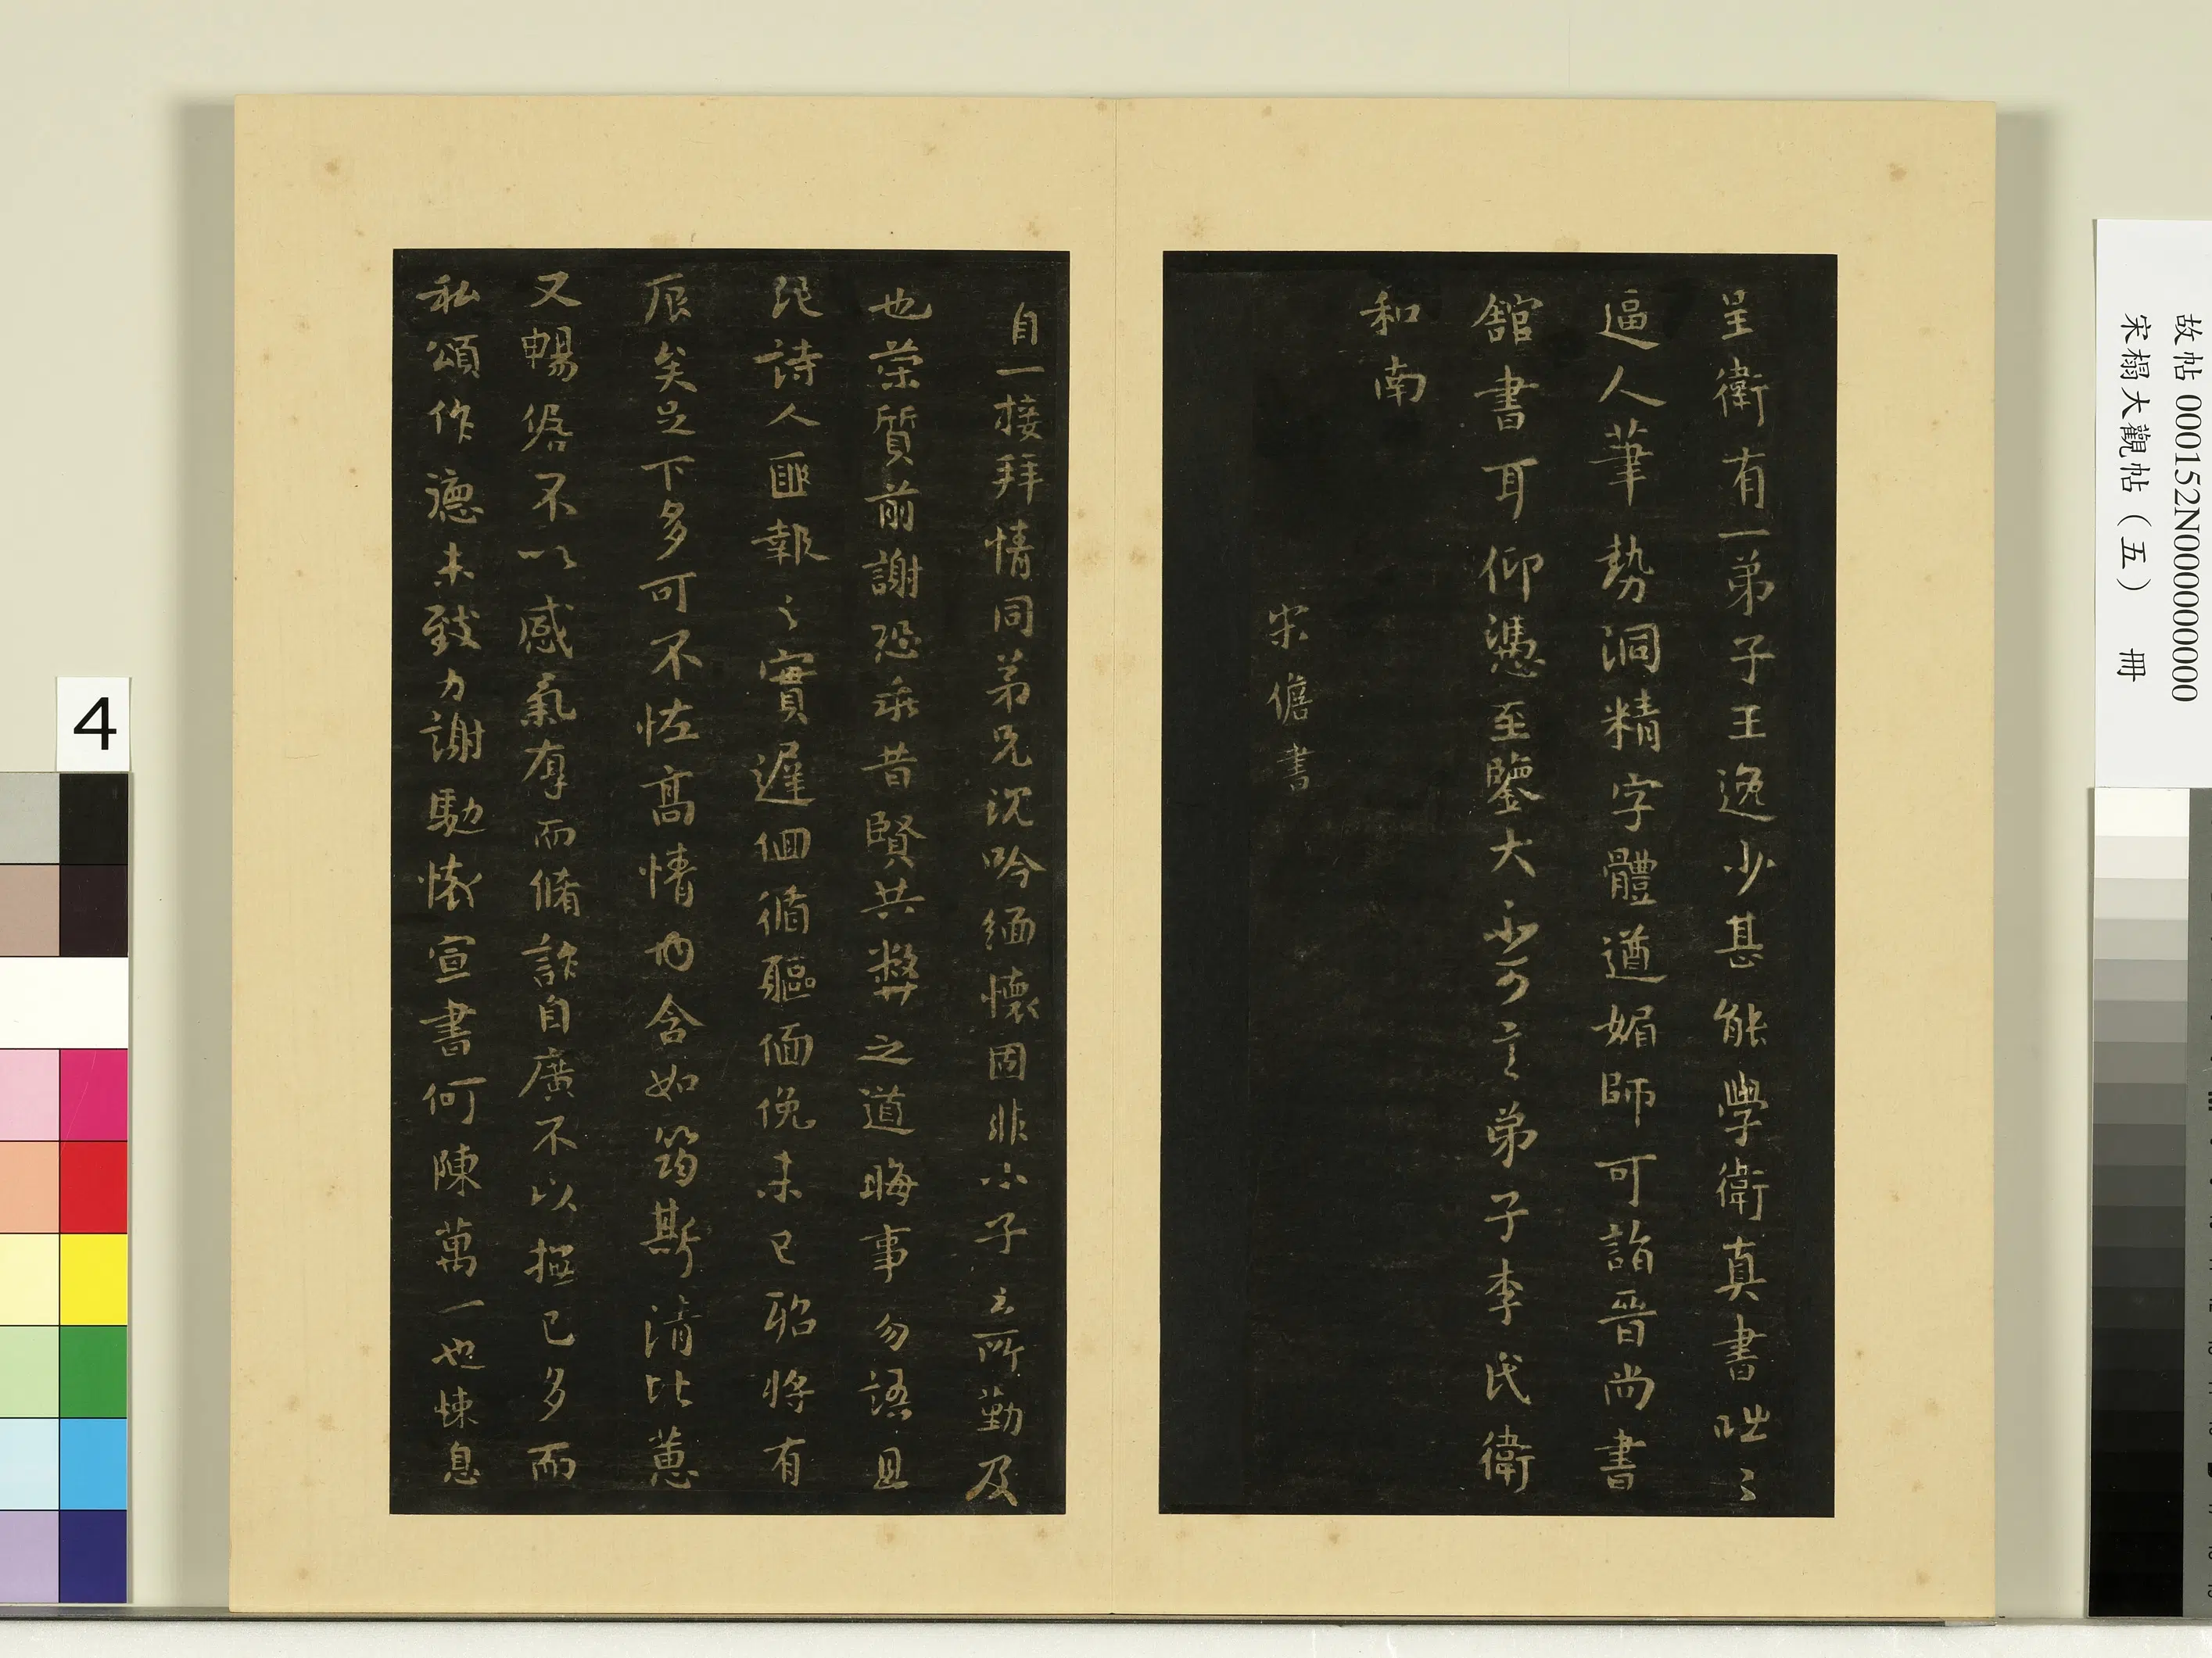 故帖 000152N000000000
宋榻大觀帖（五） 冊
呈衛有一弟子王逸少甚能學衛真書咄〻
逼人筆勢洞精字體遒媚師可詣晉尚書
館書耳仰憑至鑒大不可言弟子李氏衛
和南
宋儋書
自一接拜情同弟兄沈吟緬懷固非小子之所勤及
也荣質前謝恐乖昔賢共弊之道晦事勿語且
詩人匪報之實遲佪循驅偭俛未已聆將有
辰矣足下多可不恡高情內含如筠斯清比蕙
又暢咎不以感氣有而脩詐自廣不以撫已多而
私頌作德未致力謝馳懷宣書何陳萬一也悚息
4